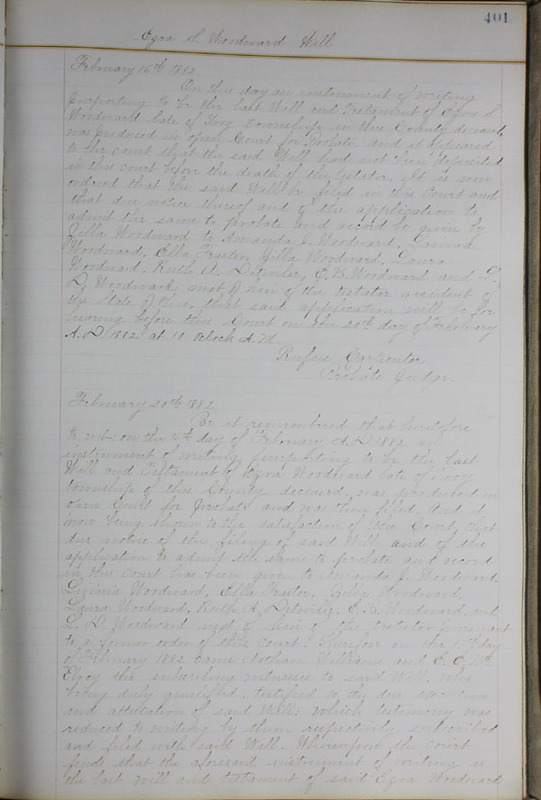 401
Ezra S. Woodward Will
February 16th 1882
On this day an instrument of writing
purporting to be the last Will and Testament of Ezra S.
Woodward late of Troy township in this County deceased,
was produced in open Court for Probate and it appeared
to the court that the said Will had not been deposited
in this court before the death of the testator. It is now
ordered that the said Will be filed in this Court and
that due notice thereof and of the application to
admit the same to probate and record be given by
Zilla Woodward to Amanda J. Woodward,
Woodward, Ella Frazier, Zilla Woodward, Laura
Woodward, Ruth A. and L.
D. Woodward, next of kin of the testator resident of
the State of Ohio, that said application will be for
hearing before this Court on the 20th day of February
A.D. 1882, at 10 oclock A.M.
Rufus Carpenter
Probate Judge.
February 20th 1882
Be it remembered that heretofore
to wit: on the 16th day of February A.D. 1882 an
instrument of writing purporting to be the last
Will and Testament of Ezra Woodward late of Troy
township of this County deceased, was produced in
open Court for probate and was then filed. And it
now being shown to the satisfaction of the Court, that
due notice of the filing of said Will and of the
application to admit the same to probate and record
in this court has been given to Amanda J. Woodward,
Woodward, Ella Frazier, Zilla Woodward,
Laura Woodward, Ruth A. Woodward, and
L. D. Woodward next of kin of the testator pursuant
to a former order of this court. Therefore on the day
of February 1882 came Nathan Williams and
Elroy the subscribing witnesses to said Will, who
being duly qualified, testified to the due execution
and attestation of said Will; which testimony was
reduced to writing by them respectively subscribed
and filed with said Will. Wherefore the court
finds that the aforesaid instrument of writing is
the last will and testament of said Ezra Woodward